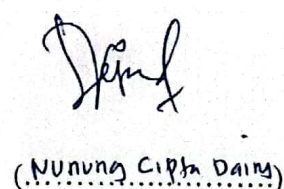 (Nunung Cipta Dainy)